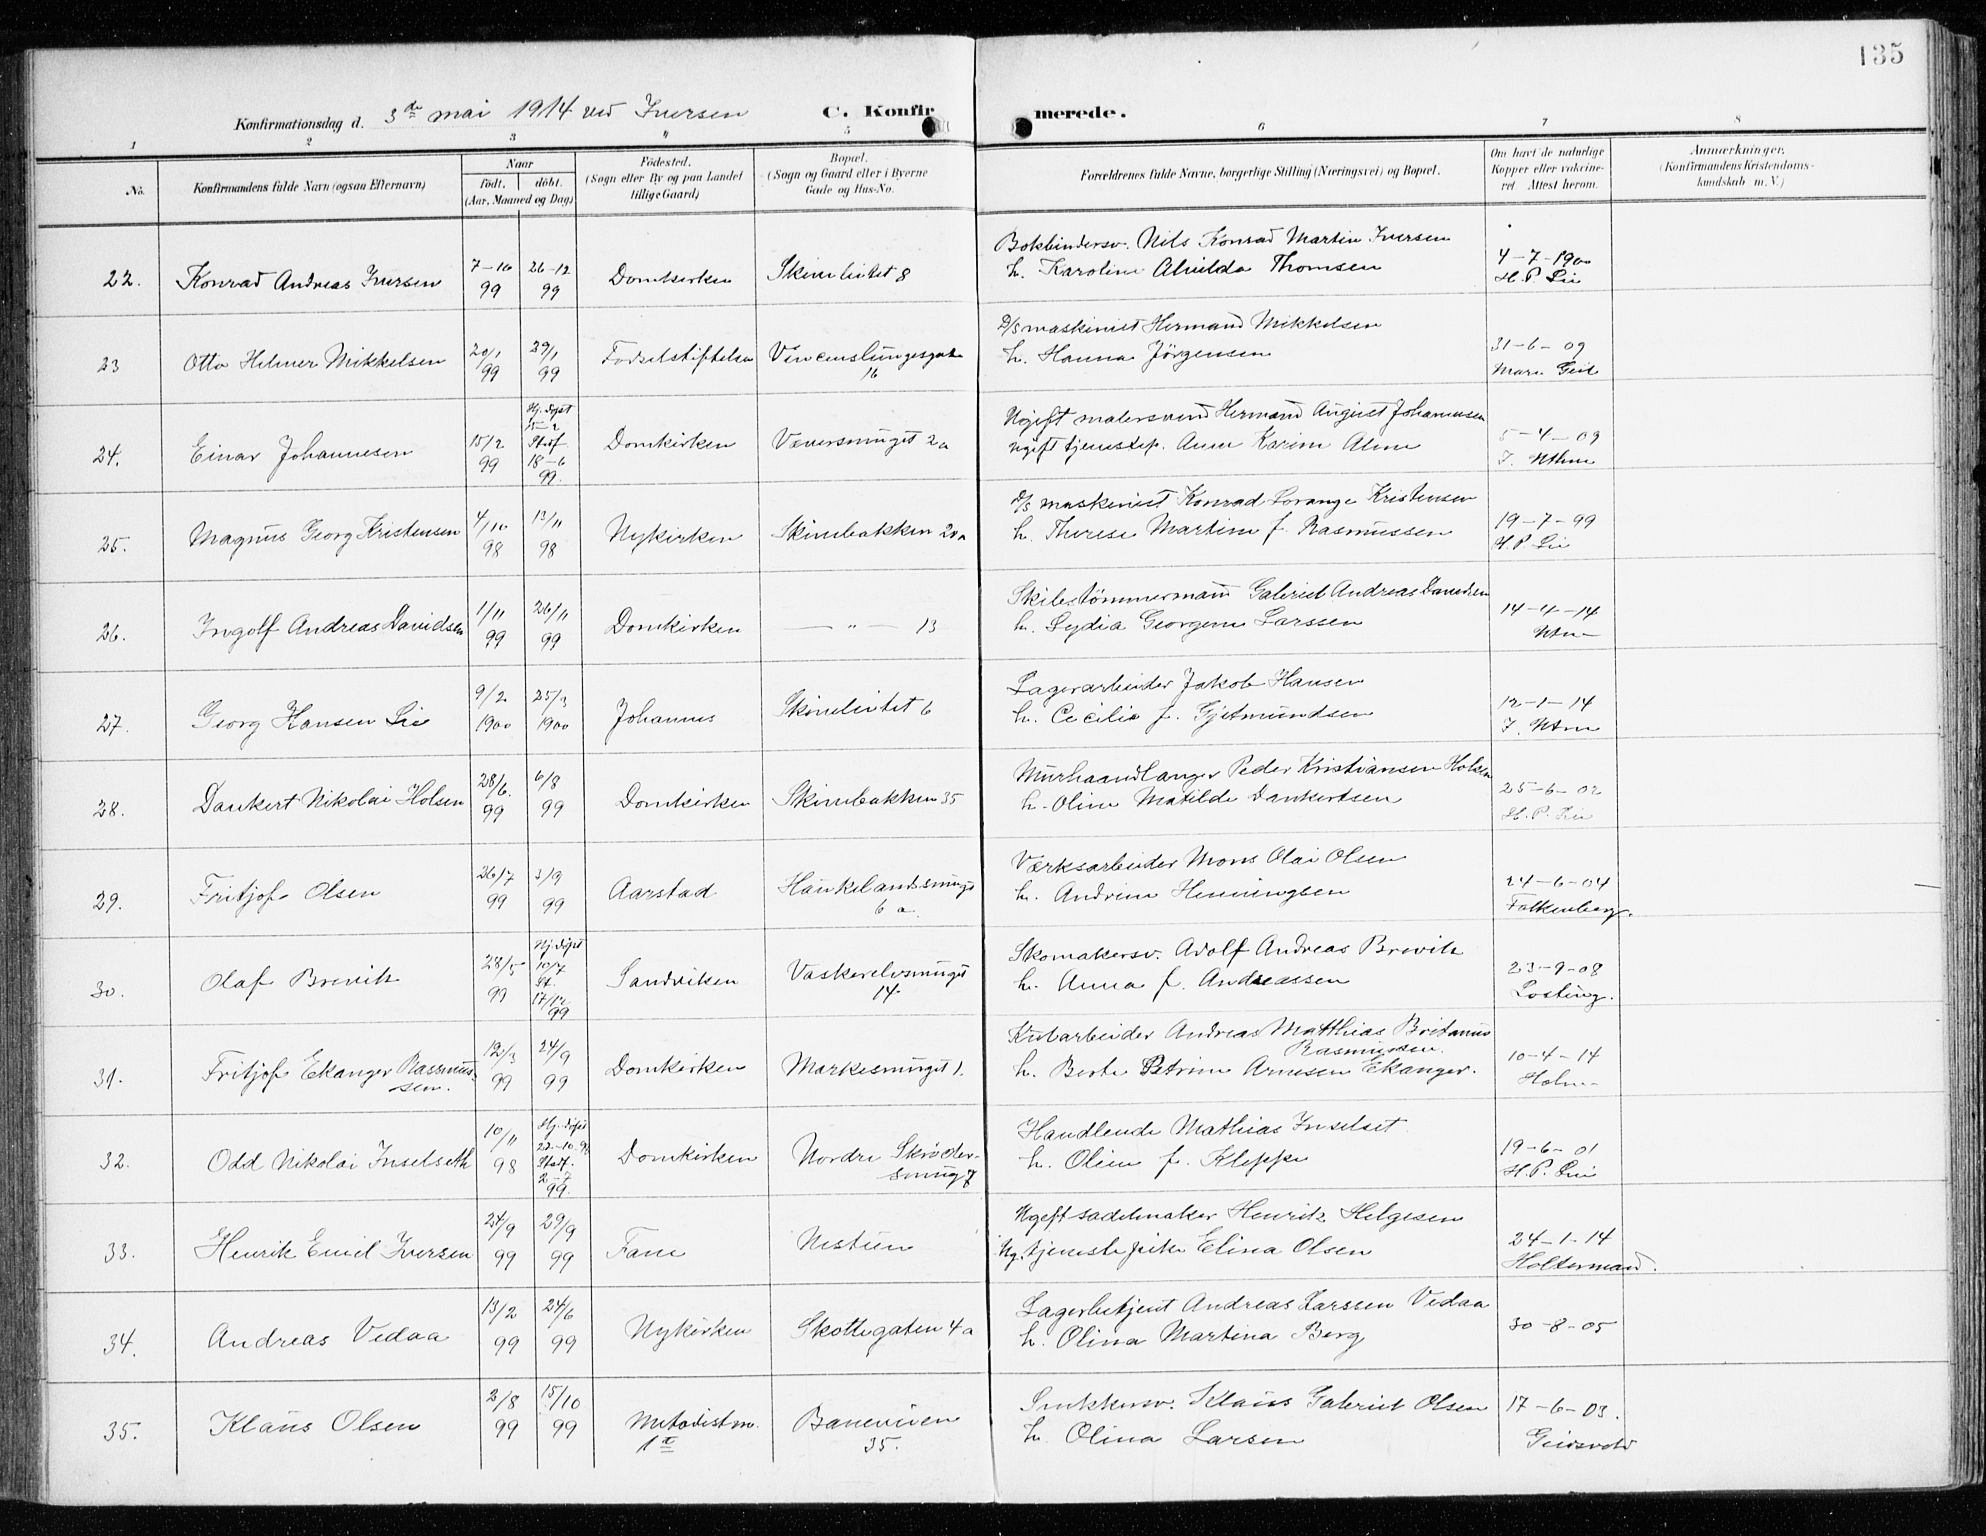 135
Konfirmationsdag d. 3de mai 1914 ved Iversen C. Konfirmerede.
1 2 3 " 5 6 7 8
No. Konfirmandens fulde Navn (ogsaa Efternavn) Naar født. døbt. (Aar, Maaned og Dag) Fødested. (Sogn eller By og paa Landet tillige Gaard) Bopæl. (Sogn og Gaard eller i Byerne Gade og Hus-No. Forældrenes fulde Navne, borgerlige Stilling (Næringsvei) og Bopæl. Om havt de naturlige Kopper eller vakcineret Attest herom. Anmærkninger. (Konfirmandens Kristendomskundskab m. V.)
Bokbindersv. Nils Konrad Martin Iversen
22. Konrad Andreas Iversen 7-10 99 26-12 99 Domkirken 8 h. Karoline Alvilda Thomsen 4-7-1900 H.P. Lie
D/s maskinist Hermand Mikkelsen
23 Otto Helmer Mikkelsen 20/1 99 29/1 99 Fødselstiftelsen Vincenslungesgate 16 h. Hanna Jörgensen 31-6-09
Ugift malersvend Hermand August Johannesen
24. Einar Johannesen 15/2 99 Hj. döpt 15-2 Stadf 18-6 99. Domkirken Væversmuget 2a ugift tjenestep. Anna Karine 5-4-09
D/s maskinist Konrad Lorange Kristensen
25. Magnus Georg Kristensen 4/10 98 13/11 98 Nykirken Skivebakken 20a h. Therese Martine f. Rasmussen 19-7-99 H.P. Lie
Skibstömmermann Gabriel Andreas Davidsen
26. Ingolf Andreas Davidsen 1/11 99 26/11 99 Domkirken — " — 13 h. Lydia Georgine Larssen 14-4-14
Lagerarbeider Jakob Hansen
27. Georg Hansen Lie 9/2 1900 25/3 1900 Johannes 6 h. Cecilie f. Gjetmundsen 12-1-14
Murhaandlanger Peder Kristiansen Holsen
28. Dankert Nikolai Holsen 28/6. 99 6/8 99 Domkirken Skivebakken 35 h. Oline Matilde Dankertsen 25-6-02 H.P. Lie
Værksarbeider Mons Olai Olsen
29. Fritjof Olsen 26/7 99 3/9 99 Aarstad Haukelandssmuget 6 a. h. Andrine Henningsen 24-6-04 Falkenberg.
Skomakersv. Adolf Andreas Brevik
30. Olaf Brevik 28/5 99 Hj. döpt 10/7 St. 17/12 99 Sandviken Vaskerelvsmuget 14. h. Anna f. Andreassen 23-9-08 Losting.
Andreas Matthias Britanus Rasmussen.
31. Fritjof Ekanger Rasmussen. 12/3 99 24/9 99 Domkirken Markesmuget 1. h. Berte Petrine Arnesen Ekanger. 10-4-14 Holm
Handlende Mathias Inselset
32. Odd Nikolai Inselseth 10/11 98 Hj. döpt 22-10 98 Stadf. 2-7 99. Domkirken Nordre Skrödersmug 7 h. Oline f. Kleppe 19-6-01 H.P. Lie
Ugift sadelmaker Henrik Helgesen
33. Henrik Emil Iversen 24/9 99 29/9 99 Fane Nestun Ug. tjenestepike Elina Olsen 24-1-14 Holtermand.
Lagerbetjent Andreas Larssen Vedaa
34. Andreas Vedaa 13/2 99 24/6 99 Nykirken Skottegaten 4a h. Olina Martina Berg 30-8-05
Snekkersv. Klaus Gabriel Olsen
35. Klaus Olsen 2/8 99 15/10 99 Metodistm. 1ste Baneveien 35. h. Olina Larsen 17-6-03. Geidsvold